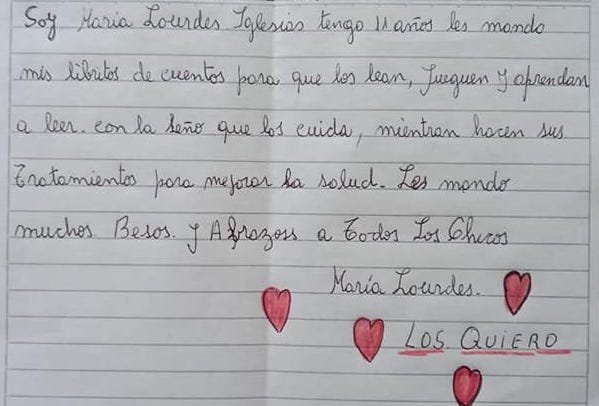 Soy Maria Lourdes Iglesias tengo 11 años les mando
mis libritos de cuentos para que los lean, Jueguen y aprendan
a leer. con la seño que los cuida, mientras hacen sus
tratamientos para mejorar la salud. Les mando
muchos Besos. y Abrazoss a Todos Los Chicos
María Lourdes.
LOS QUIERO